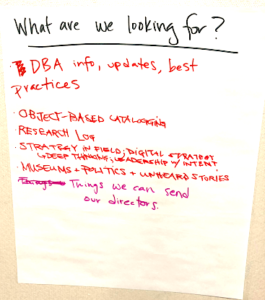 What are we looking for?
DBA info, updates, best
practices
· OBJECT-BASED CATALOGING
· RESEARCH LOG
· STRATEGY IN FIELD; DIGITAL STRATEGY
↳ DEEP THINKING, LEADERSHIP W/ INTENT
· MUSEUMS + POLITICS + UNHEARD STORIES
Things we can send
our directors.